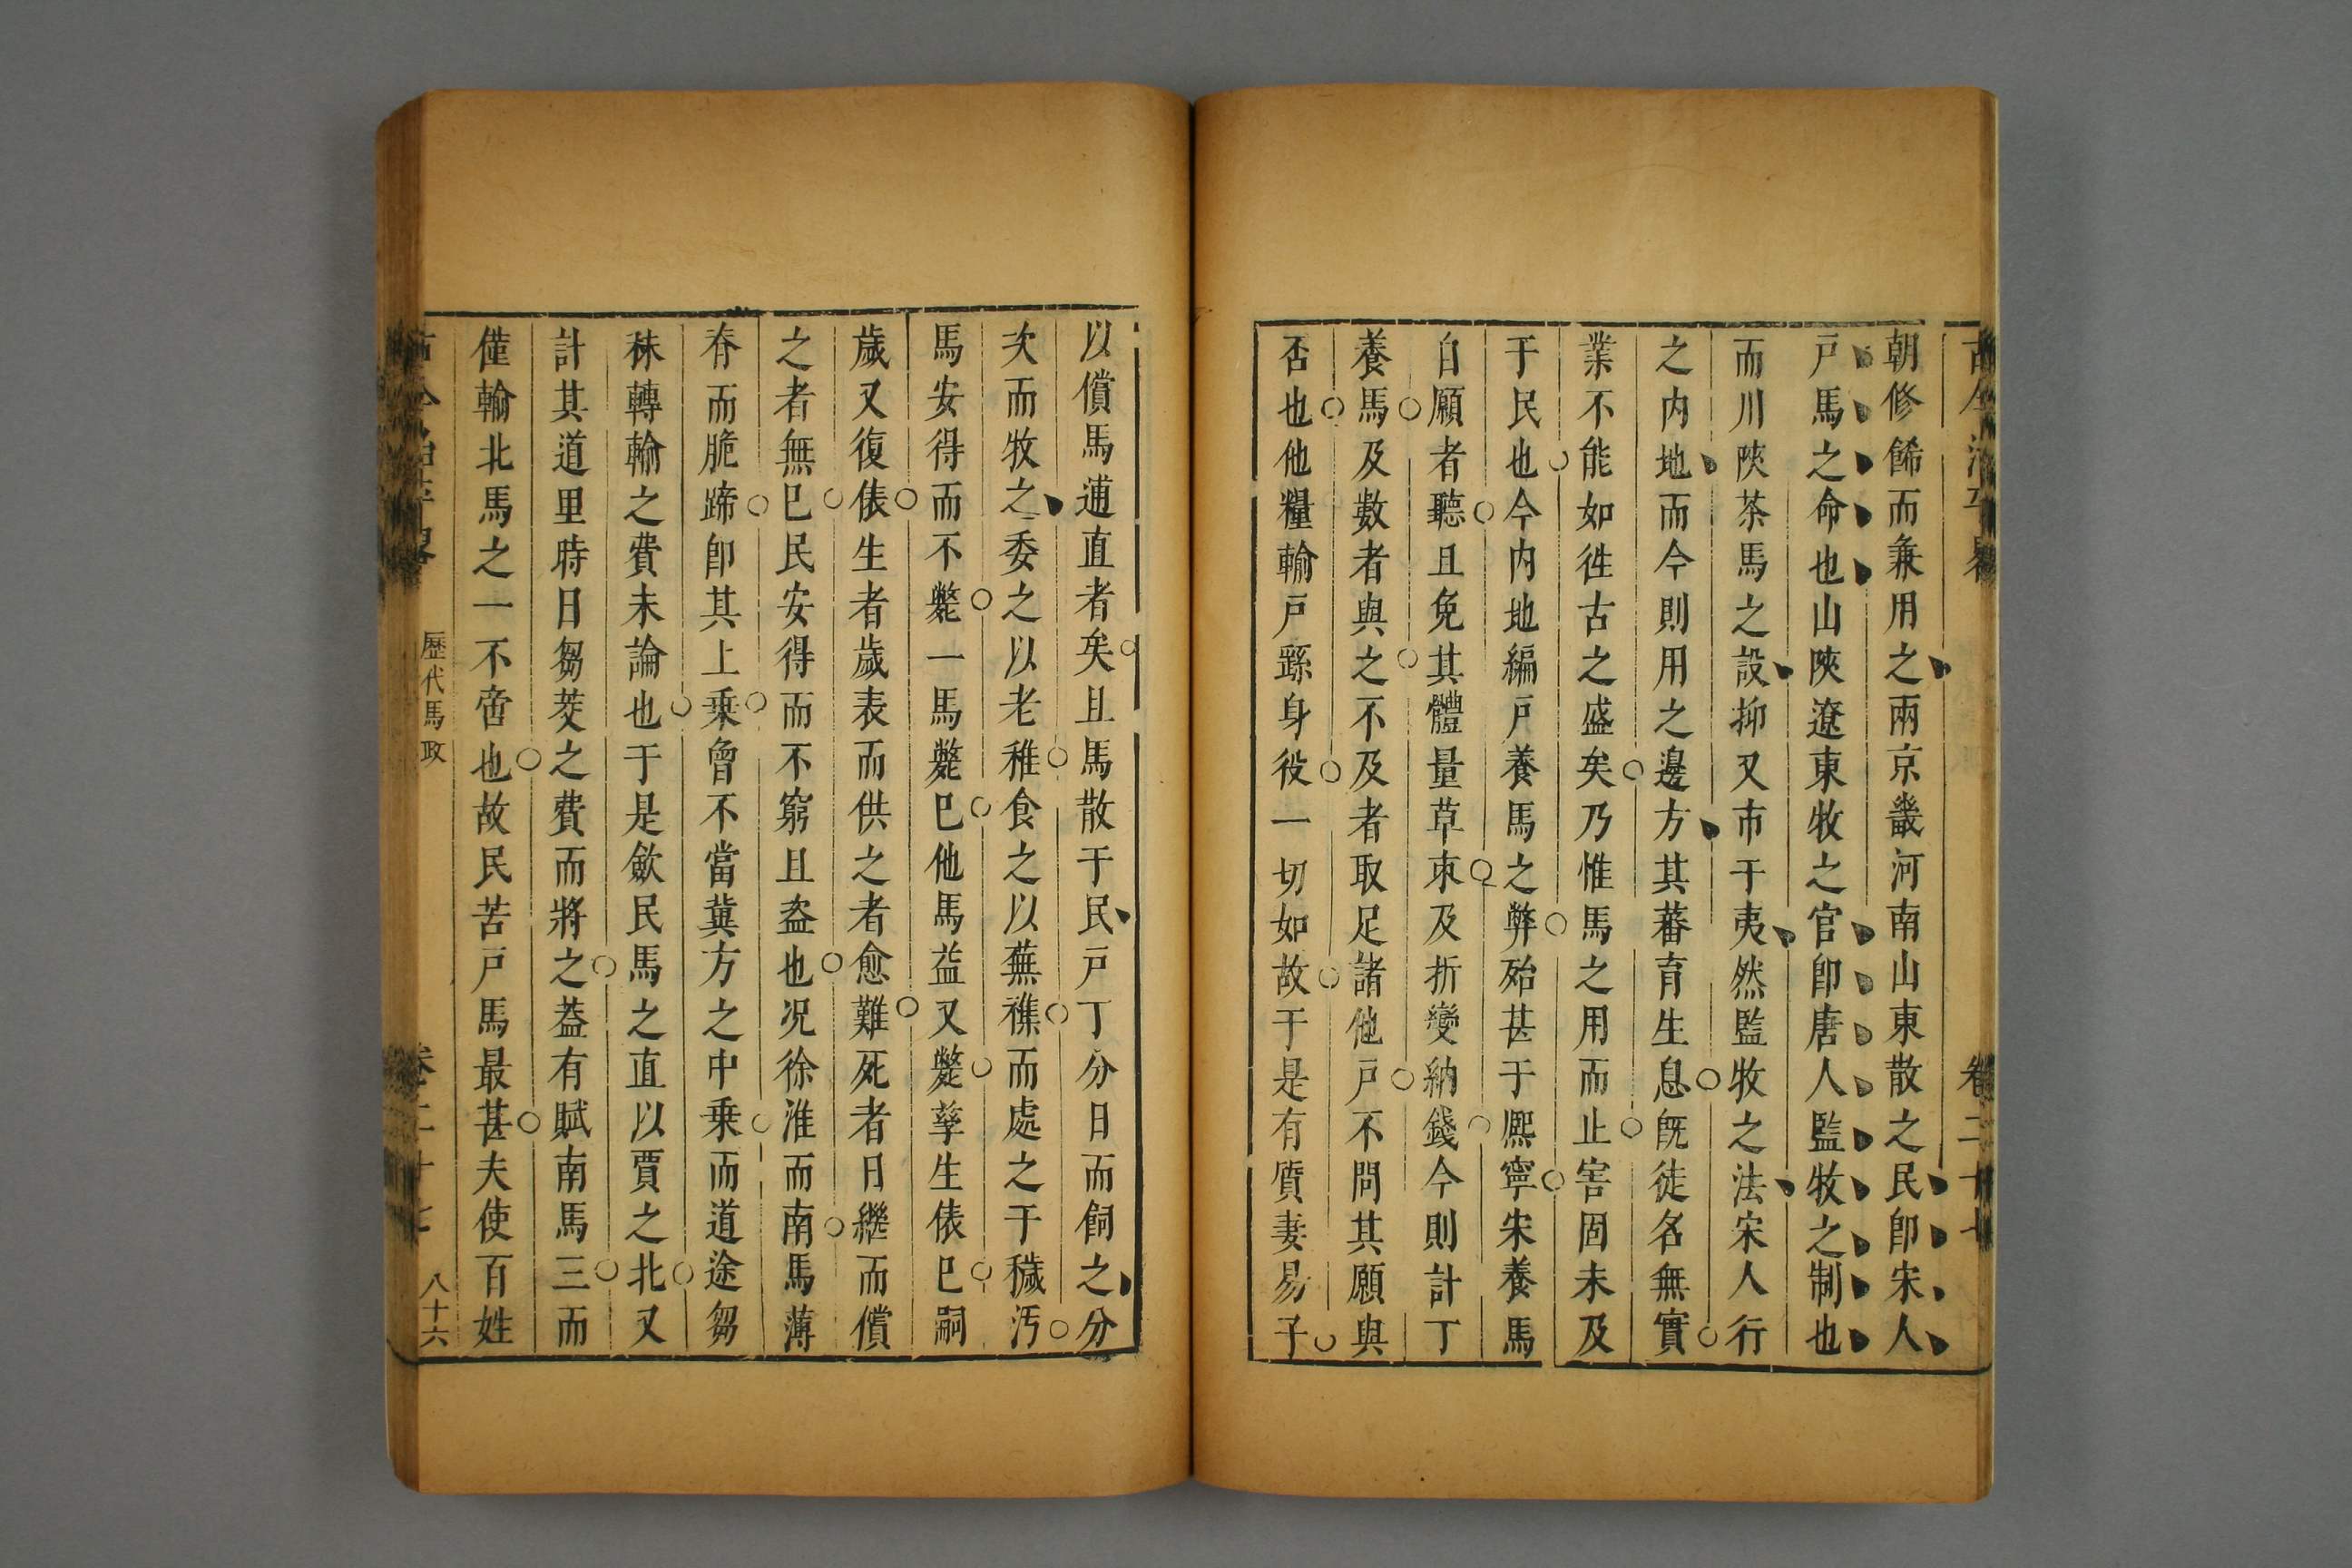 卷二十七
朝修餙而兼用之兩京畿河南山東散之民卽宋人
戸馬之命也山陝遼東牧之官卽唐人監牧之制也
而川陝茶馬之設抑又市于夷然監牧之法宋人行
之内地而今則用之邊方其蕃育生息旣徒名無實
業不能如徃古之盛矣乃惟馬之用而止害固未及
于民也今内地編戸養馬之弊殆甚于熈寧宋養馬
自願者聽且免其體量草朿及折變納錢今則計丁
養馬及數者與之不及者取足諸他戸不問其願與
否也他糧輸戸繇身役一切如故于是有質妻易子
以償馬逋直者矣且馬散于民戸丁分日而飼之分
次而牧之委之以老稚食之以蕪穢而處之于穢汚
馬安得而不斃一馬斃巳他馬益又斃孳生俵巳嗣
歲又復俵生者歲表而供之者愈難死者日繼而償
之者無巳民安得而不窮且盗也况徐淮而南馬薄
脊而脆蹄卽其上乗曾不當冀方之中乗而道途芻
秣轉輸之費未論也于是歛民馬之直以賈之北又
計其道里時日芻茭之費而將之葢有賦南馬三而
僅輸北馬之一不啻也故民苦戸馬最甚夫使百姓
歷代馬政
八十六